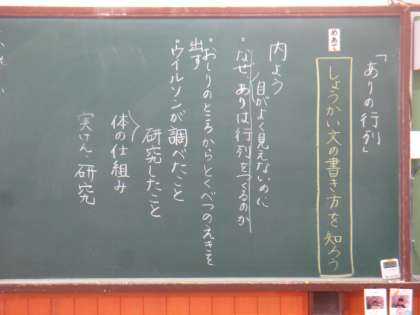 「ありの行列」
めあて
しょうかい文の書き方を知ろう
内よう
目がよく見えないのに
・なぜ、ありは行列をつくるのか
・おしりのところからとくべつのえきを
出す
・ウイルソンが調べたこと
研究したこと
体の仕組み
実けん・研究